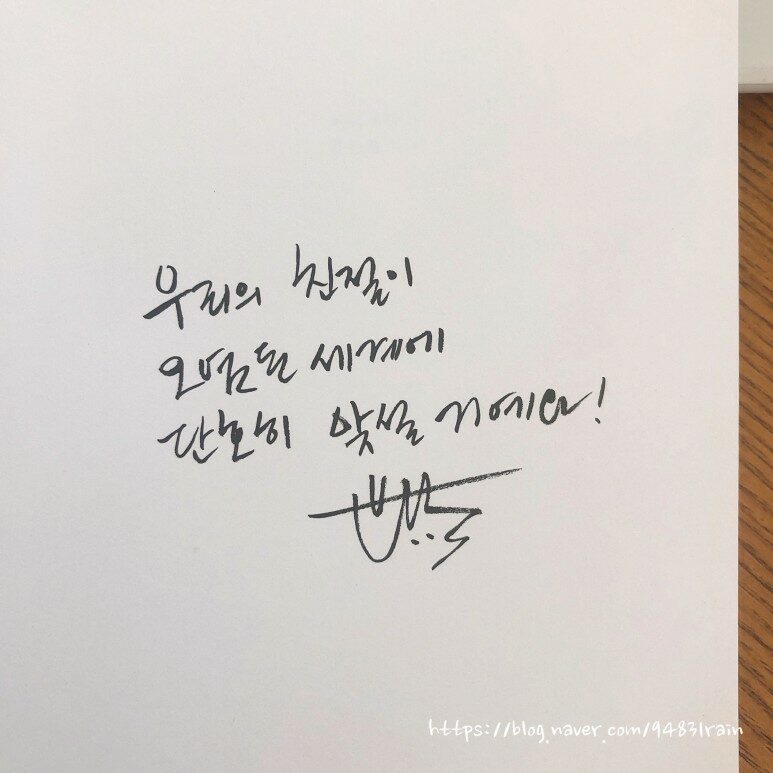 우리의 친절이
오염된 세계에
단호히 맞설 거예요!
https://blog.naver.com/94831rain